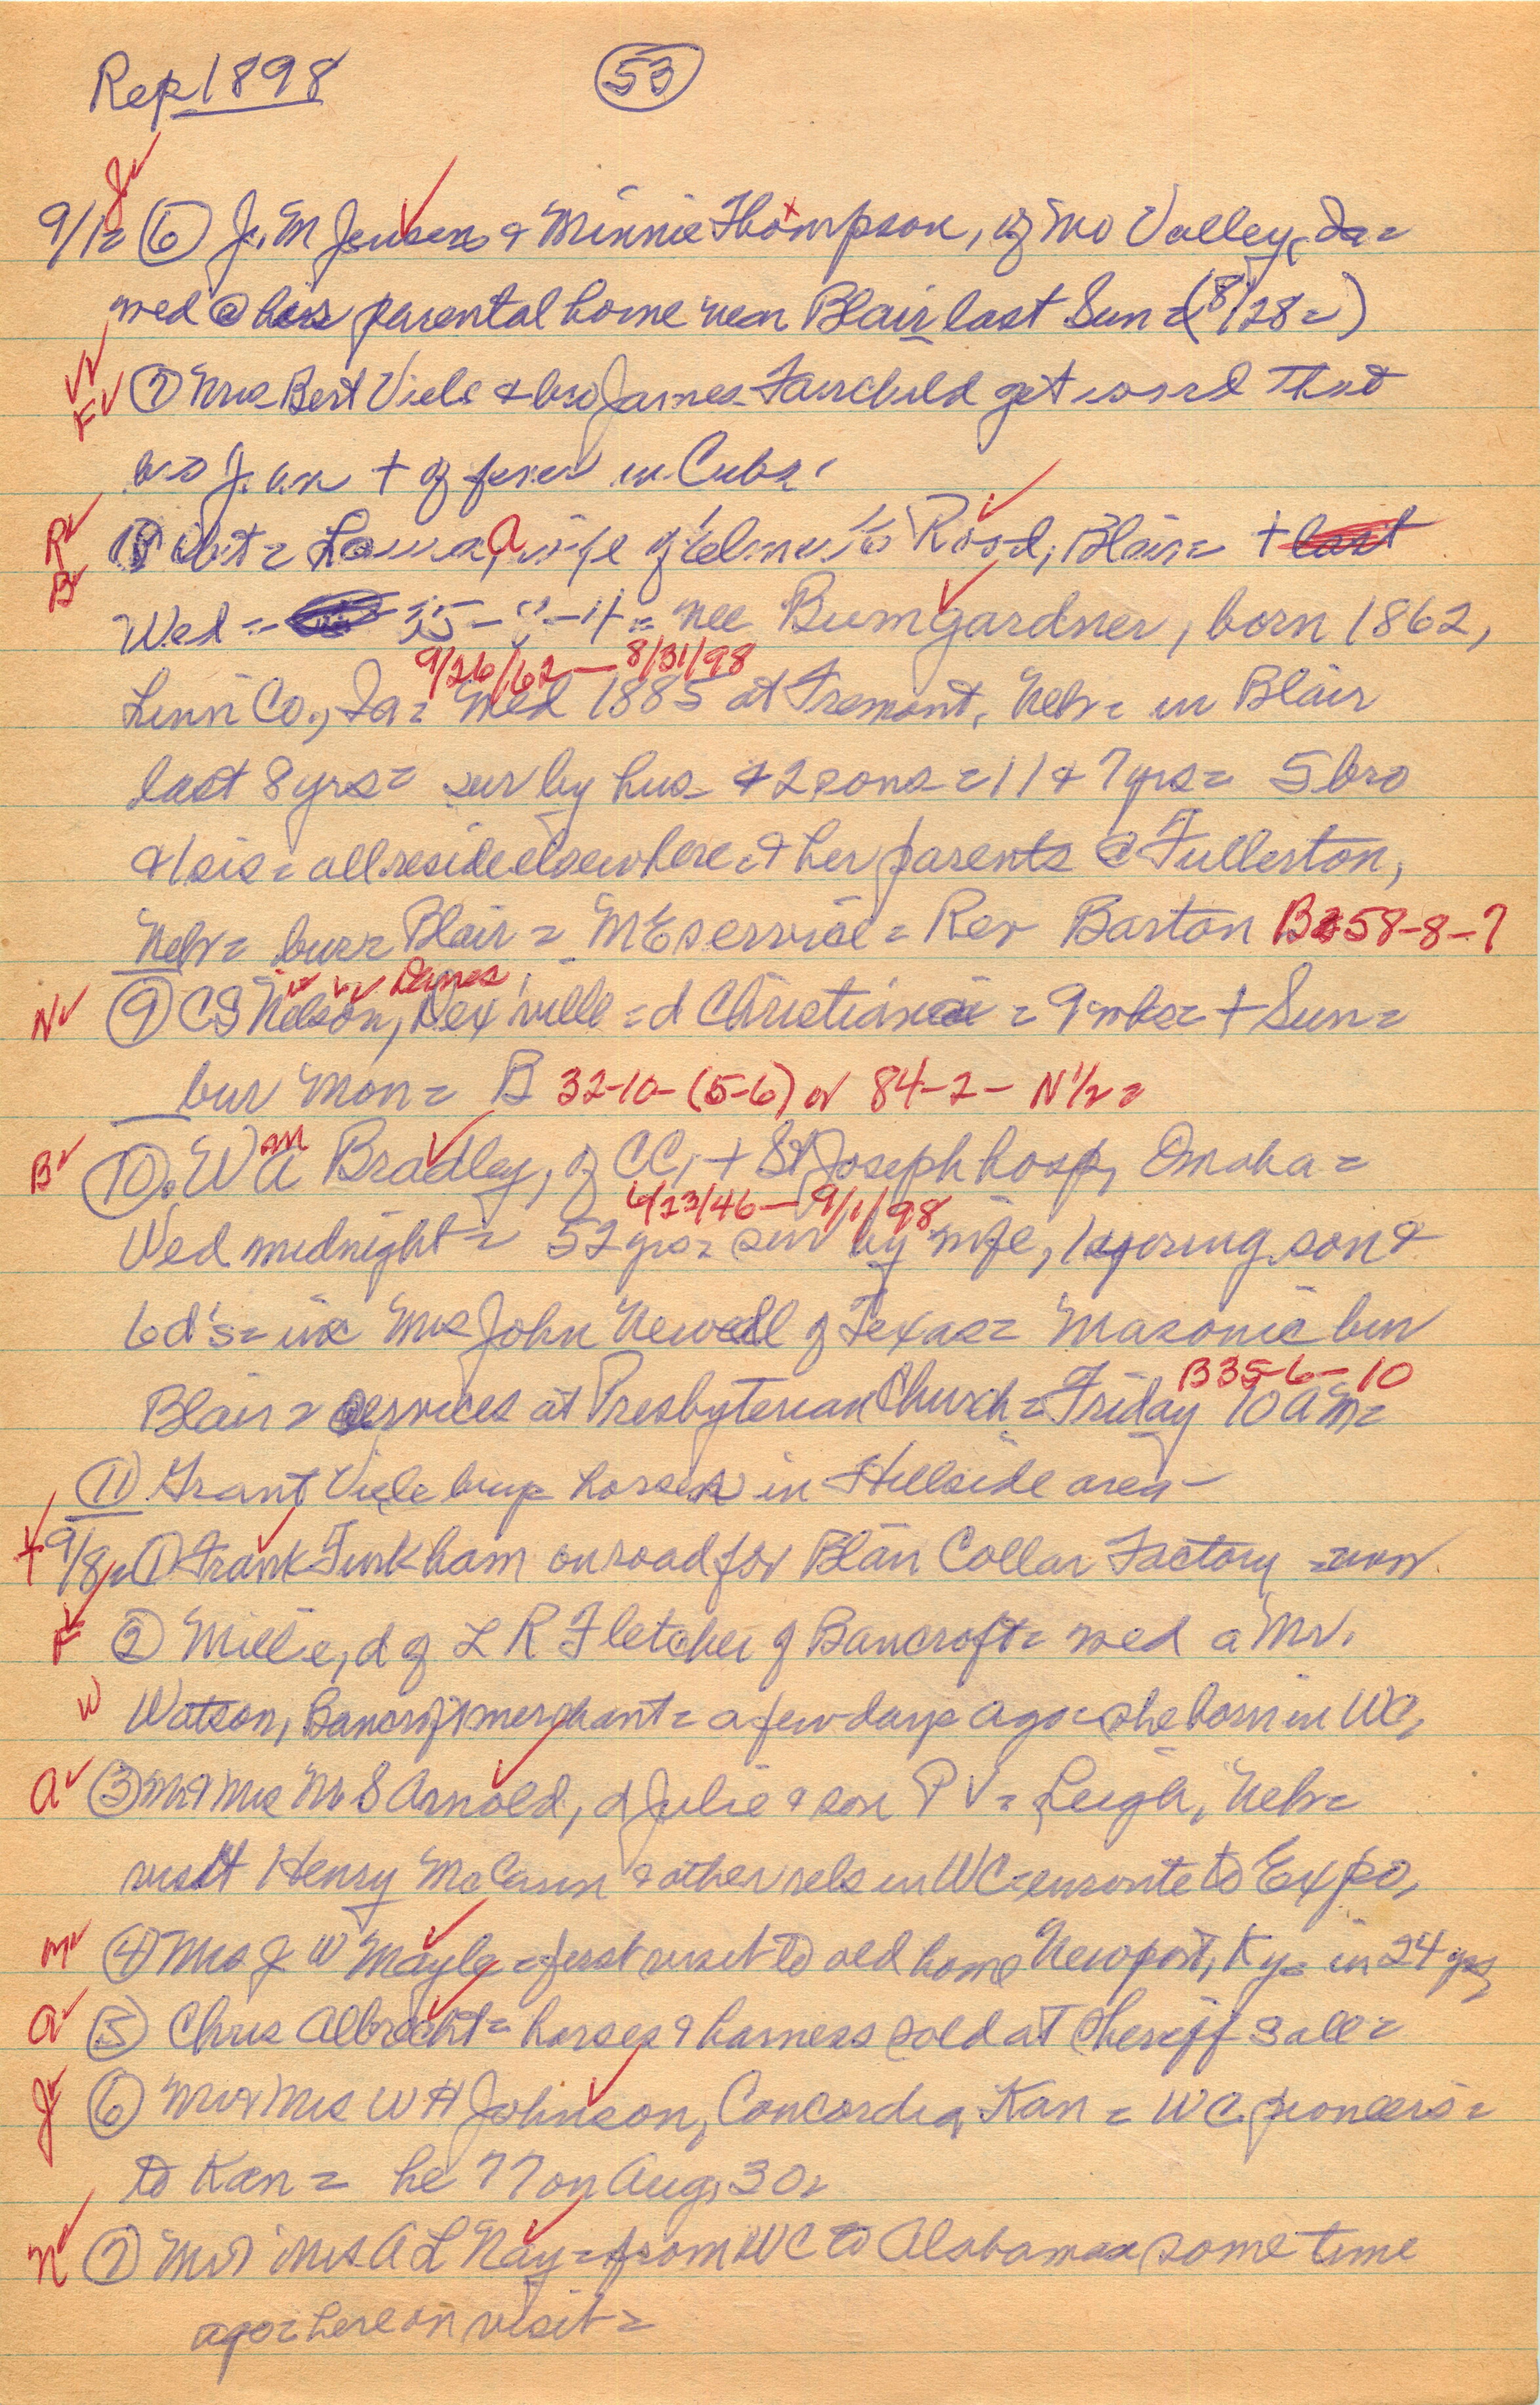 Rep 1898 53
9/1= 6 J. M Jensen & Minnie Thompson, of Mo Valley, Ia=
med @ her parental home near Blair last Sun = (8/28=)
V F 7 Mrs Bert Viele & bro James Fairchild get word that
bro + of fever in Cuba.
R 8 obit = Laura, wife of Elmer Rood, Blair = + last
B Wed = nee Bumgardner, born 1862,
9/26/62 — 8/31/98
Linn Co., Ia = med 1885 at Fremont, Nebr = in Blair
last 8 yrs = sur by hus & 2 sons = 11 & 7 yrs = 5 bro
& 1 sis = all reside elsewhere = & her parents @ Fullerton,
Nebr = bur = Blair = ME service = Rev Barton B 58-8-7
N 9 CS Nelson, Dex'ville = d Christiana = 9 mos = + Sun =
bur Mon = B 32-10-(5-6) or 84-2- N½ =
B 10. W A Bradley, of CC, + St Joseph hosp, Omaha =
6/23/46 — 9/1/98
Wed midnight = 52 yrs = sur by wife, 1 young son &
6 d's = inc Mrs John Newell of Texas = Masonic bur
B 35-6-10
Blair = services at Presbyterian Church = Friday 10 am =
11 Grant Viele buys horses in Hillside area -
9/8 = 1 Frank Turkham on road for Blair Collar Factory = now
F 2 Millie, d of L R Fletcher of Bancroft = med a Mr.
W Watson, Bancroft merchant = a few days ago = she born in WC,
A 3 Mr & Mrs M S Arnold, d Julie & son P V = Leigh, Nebr =
visit Henry McCann & other rels in WC = enroute to Expo,
M 4 Mrs J W Mayle = first visit to old home Newport, Ky = in 24 yrs
A 5 Chris Albrecht = horses & harness sold at Sheriff Sale =
J 6 Mr & Mrs W H Johnson, Concordia, Kan = WC pioneers =
to Kan = he 77 on Aug. 30 =
N 7 Mr & Mrs A L Nay = from WC to Alabama some time
ago = here on visit =